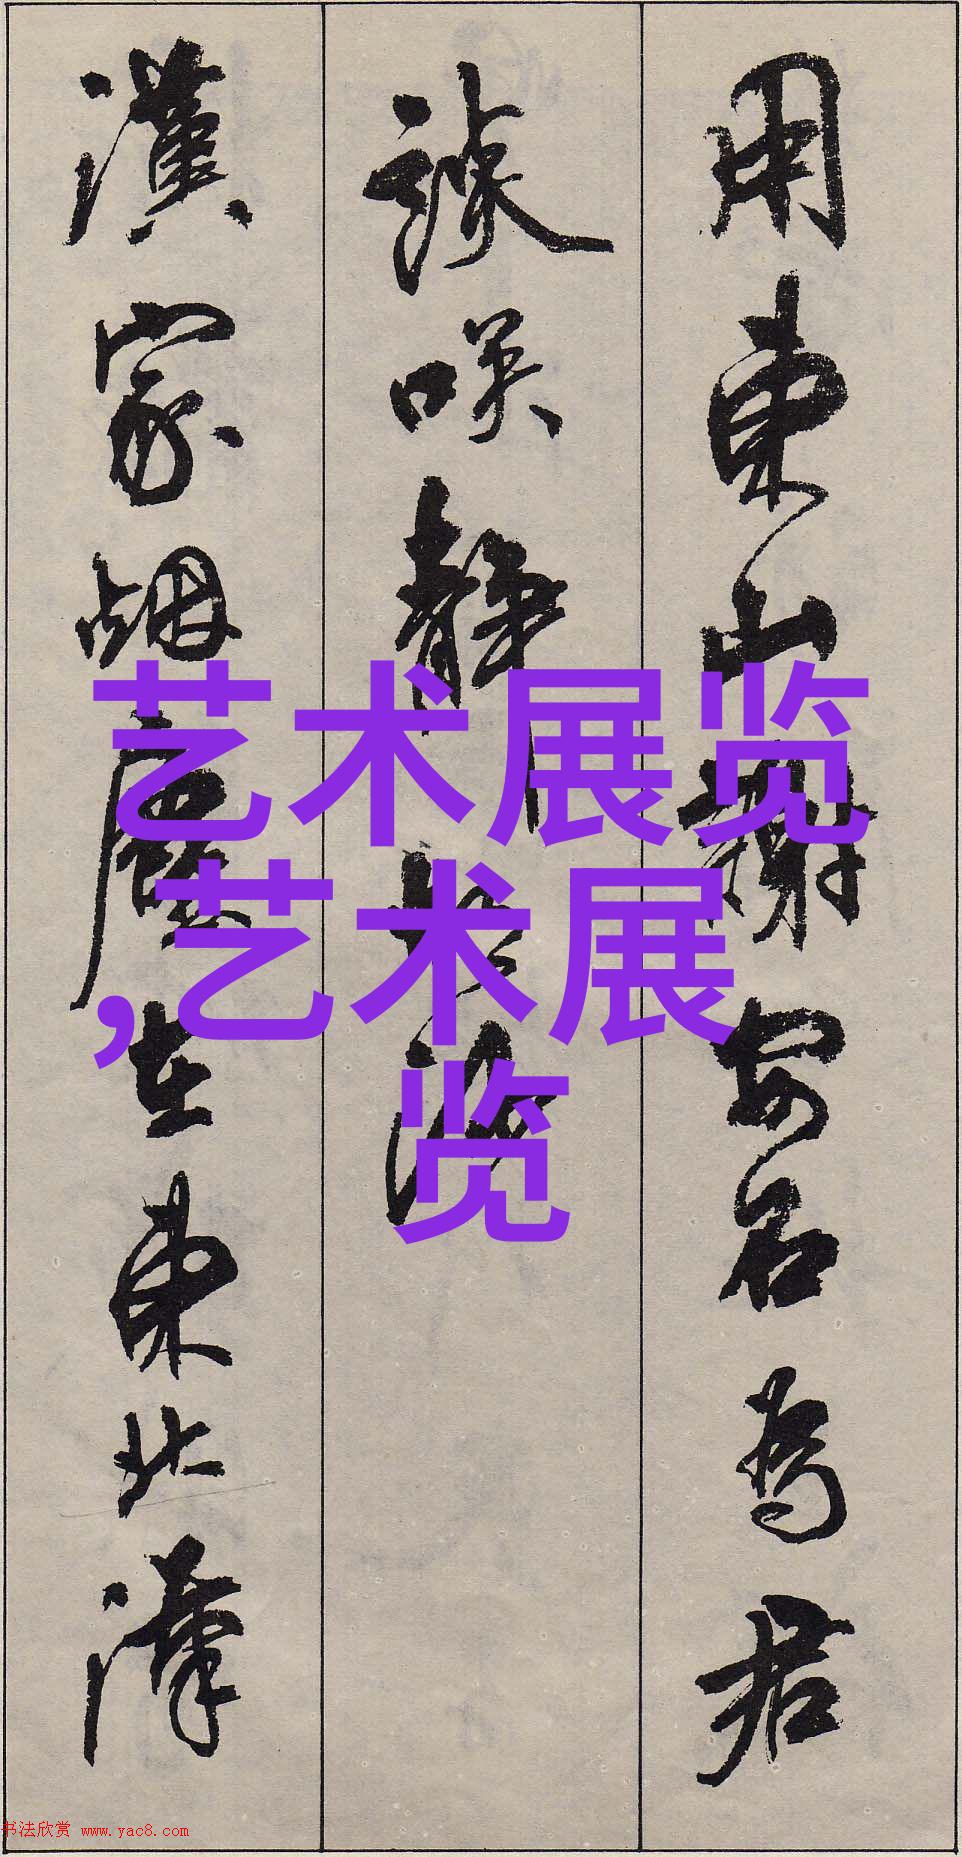 用東山謝安石為君
談咲静胡沙
漢家烟塵在東北漢
艺术展览
,艺术展
览
书法欣赏 www.yac8.com